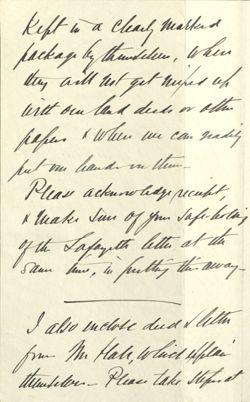 Kept in a clearly marked
package by themselves, where
they will not get mixed up
with our land deeds or other
papers & when we can readily
put our hands on them—
Please acknowledge receipt,
& make sure of your safe-holding
of the Lafayette letter at the
same time, in putting this away—
I also inclose deed & letter
from Mr Hale, which explain
themselves— Please take steps at